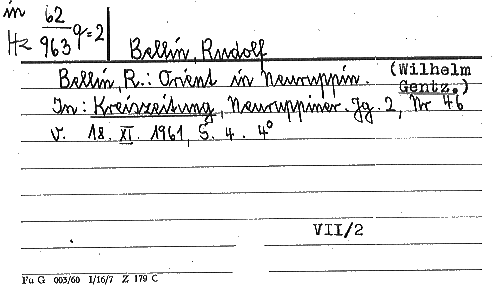 in 62
Hz 963 q=2
Bellin, Rudolf
Bellin, R.: Orient in Neuruppin. (Wilhelm
Gentz.)
In: Kreiszeitung, Neuruppiner. Jg. 2, Nr 46
v. 18. XI. 1961, S. 4. 4°
VII/2
Fu G 003/60 1/16/7 Z 179 C